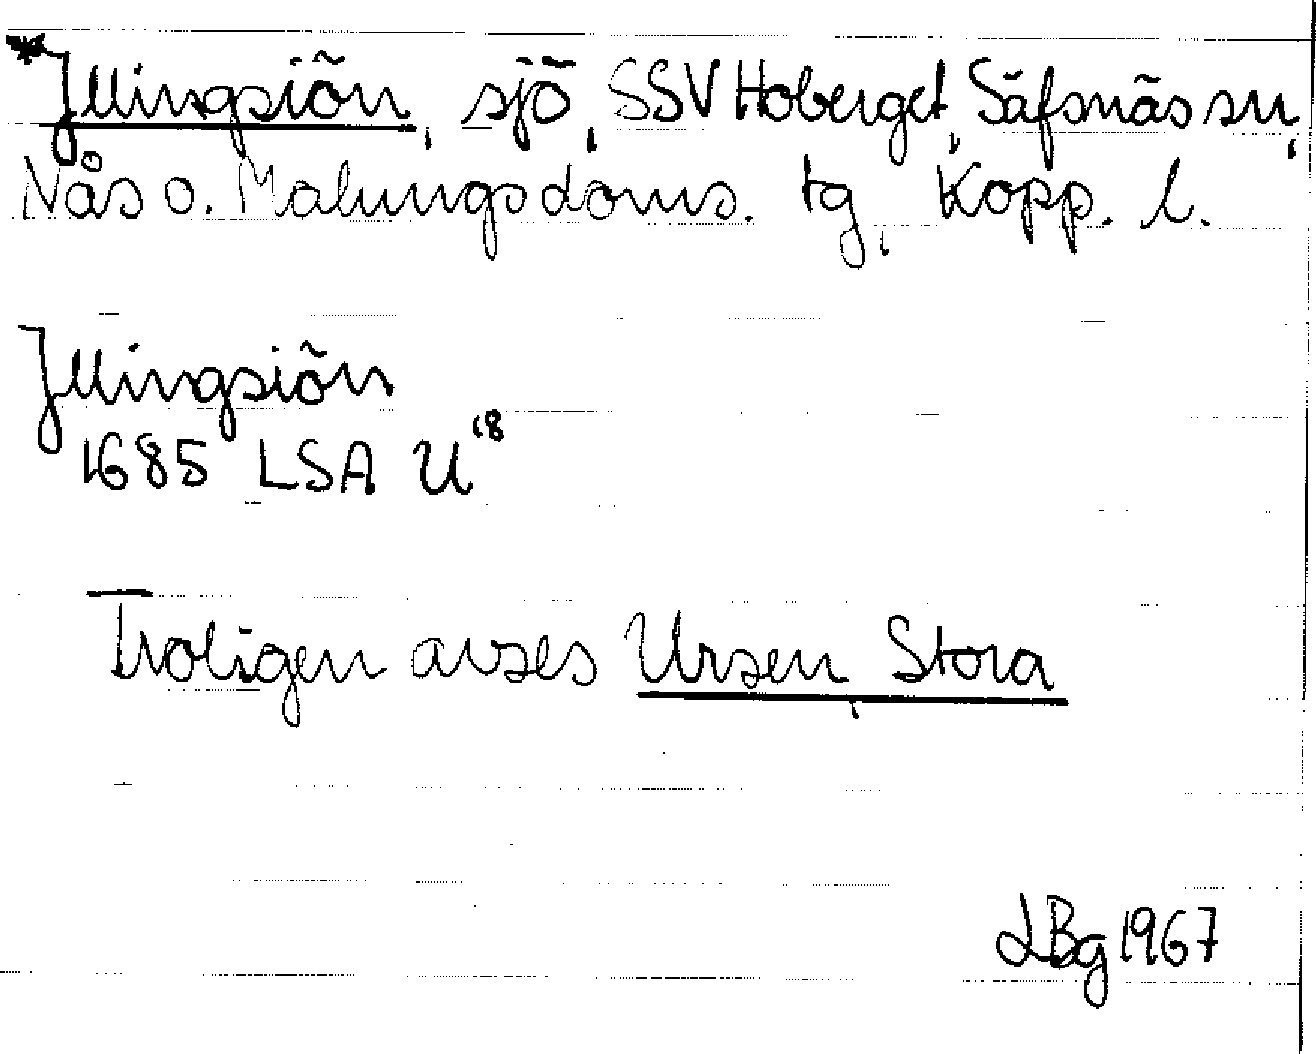 *Jllingsiön, sjö, SSV Hoberget, Säfsnäs sn,
Nås o. Malungs doms. tg, Kopp. l.
Jllingsiön
1685 LSA U18
Troligen avses Ursen, Stora
LBg 1967